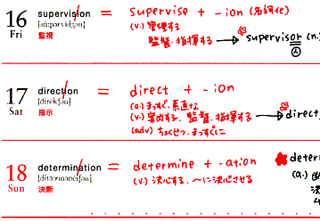 16 supervision = supervise + -ion (名詞化)
Fri [sùːpərvíʒən] (v.) 管理する
監視 監督.指揮する → supervisor (n.
17 direction = direct + -ion
Sat [dirékʃən] (a.) まっすぐ.素直な
指示 (v.) 案内する. 監督.指揮する → direct
(adv.) ちょくせつ.まっすぐに
18 determination = determine + -ation deter
Sun (v.) 決心する. ～に決心させる (a.)
決断 決